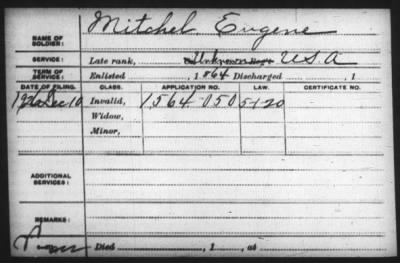 NAME OF SOLDIER: Mitchel Eugene
SERVICE: Late rank, Unknown U.S.A
TERM OF SERVICE: Enlisted , 1864 Discharged , 1
DATE OF FILING. CLASS. APPLICATION NO. LAW. CERTIFICATE NO.
Dec 10 Invalid, 1564 050 5-1-20
Widow,
Minor,
ADDITIONAL SERVICES:
REMARKS:
Died , 1 , at